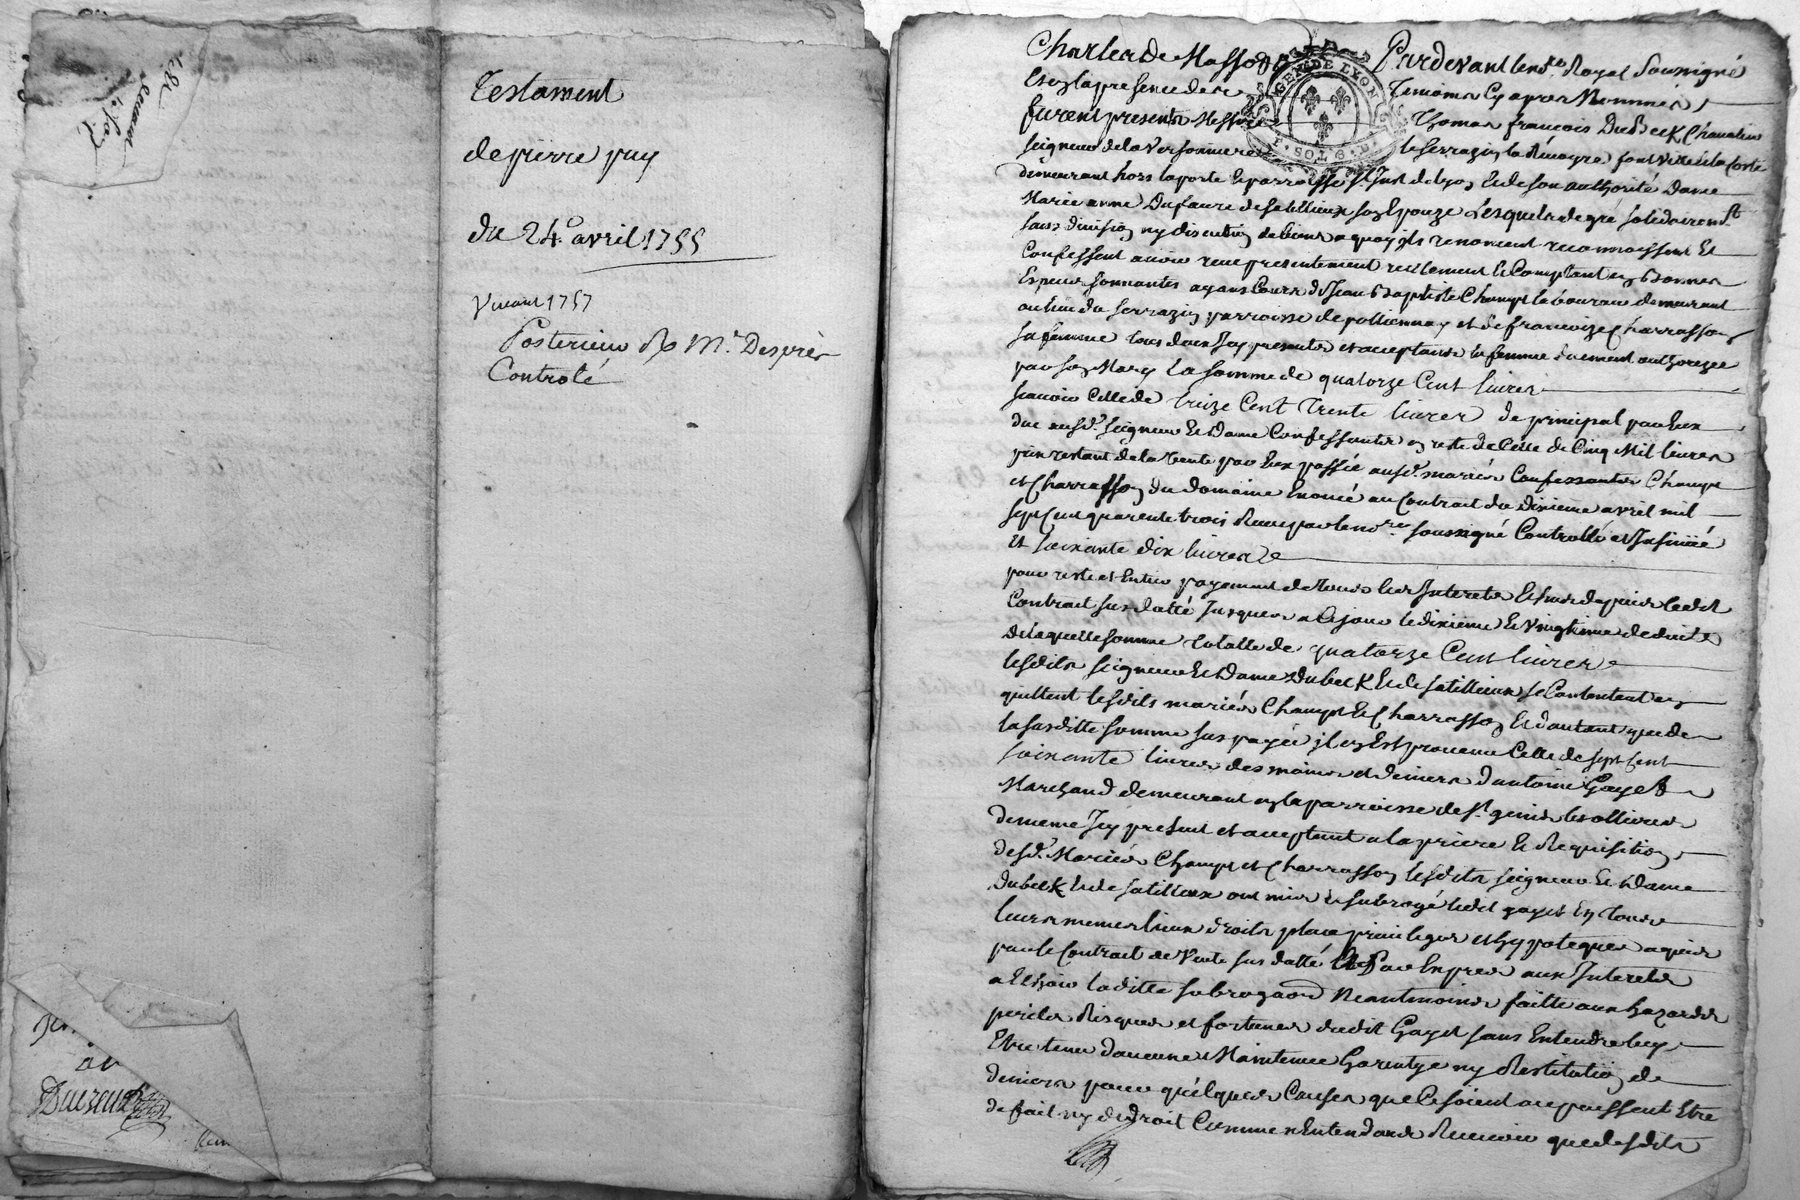 Testament
de pierre puy
du 24e avril 1755
Vivant 1757
Posterieur de Mr Desprès
Controlé
Charles de Masso
GEN DE LYON
2 SOLS
Pardevant le nore Royal Soussigné
Et en la presence de
Temoins Cy apres Nommés
furent presents Messire
Thomas françois Dubeck Chevalier
seigneur de la Versonniere
le serrazin la
demeurant hors la porte & parroisse St Just de Lyon & de son authorité Dame
Marie anne Dufaure de Satillieux son Epouze Lesquels de gré solidairemt
sans division ny discution de biens a quoy ils renoncent reconnoissent Et
Confessent avoir reçu presentement reellement & Comptant en Bonnes
Especes sonnantes ayans Cours de Jean Baptiste Champt laboureur demeurant
au lieu du serrazin parroisse de pollionnay et de françoize Charrasson
sa femme tous deux Icy presents et acceptants la femme duement authorizée
par son Mary la somme de quatorze Cent livres
sçavoir Celle de treize Cent Trente livres de principal par Eux
due ausd. seigneur & Dame Confessants en reste de Celle de Cinq Mil livres
prix restant de la Vente par Eux passée ausd. mariés Confessants Champt
et Charrasson du domaine Enoncé au Contrat du dixieme avril mil
sept Cent quarente trois Reçu par le nore soussigné Controllé et Insinué
Et soixante dix livres
pour reste et Entier payement de tous les Interets Echus depuis ledit
Contrat sus datté Jusques a Ce jour le dixieme & Vingtieme deduits
De laquelle somme totalle de quatorze Cent livres
lesdits seigneur & Dame Dubeck & de satillieux se Contentent en
quittent lesdits mariés Champt & Charrasson Et d'autant que de
la susditte somme sus payée il en Est provenu Celle de sept Cent
soixante livres des mains et deniers d'antoine Gayet
Marchand demeurant en la parroisse de St genis les ollieres
de meme Icy present et acceptant a la priere & Requisition
desd. Mariés Champt et Charrasson lesdits seigneur & Dame
Dubeck & de satillieux ont mis & subrogé ledit gayet En tous
leurs memes lieux droits place privileges et hypoteques acquis
par le Contrat de Vente sus datté Et Par Exprès aux Interets
a Echoir laditte subrogaon Neantmoins faitte aux hazards
perils Risques et fortunes dudit Gayet sans Entendre luy
Etre tenus d'aucune Maintenue Garentye ny Restitution de
deniers pour quelques Causes que Ce soient ou puissent Etre
de fait ny de Droit Comme n'Entendants Recevoir que desdits